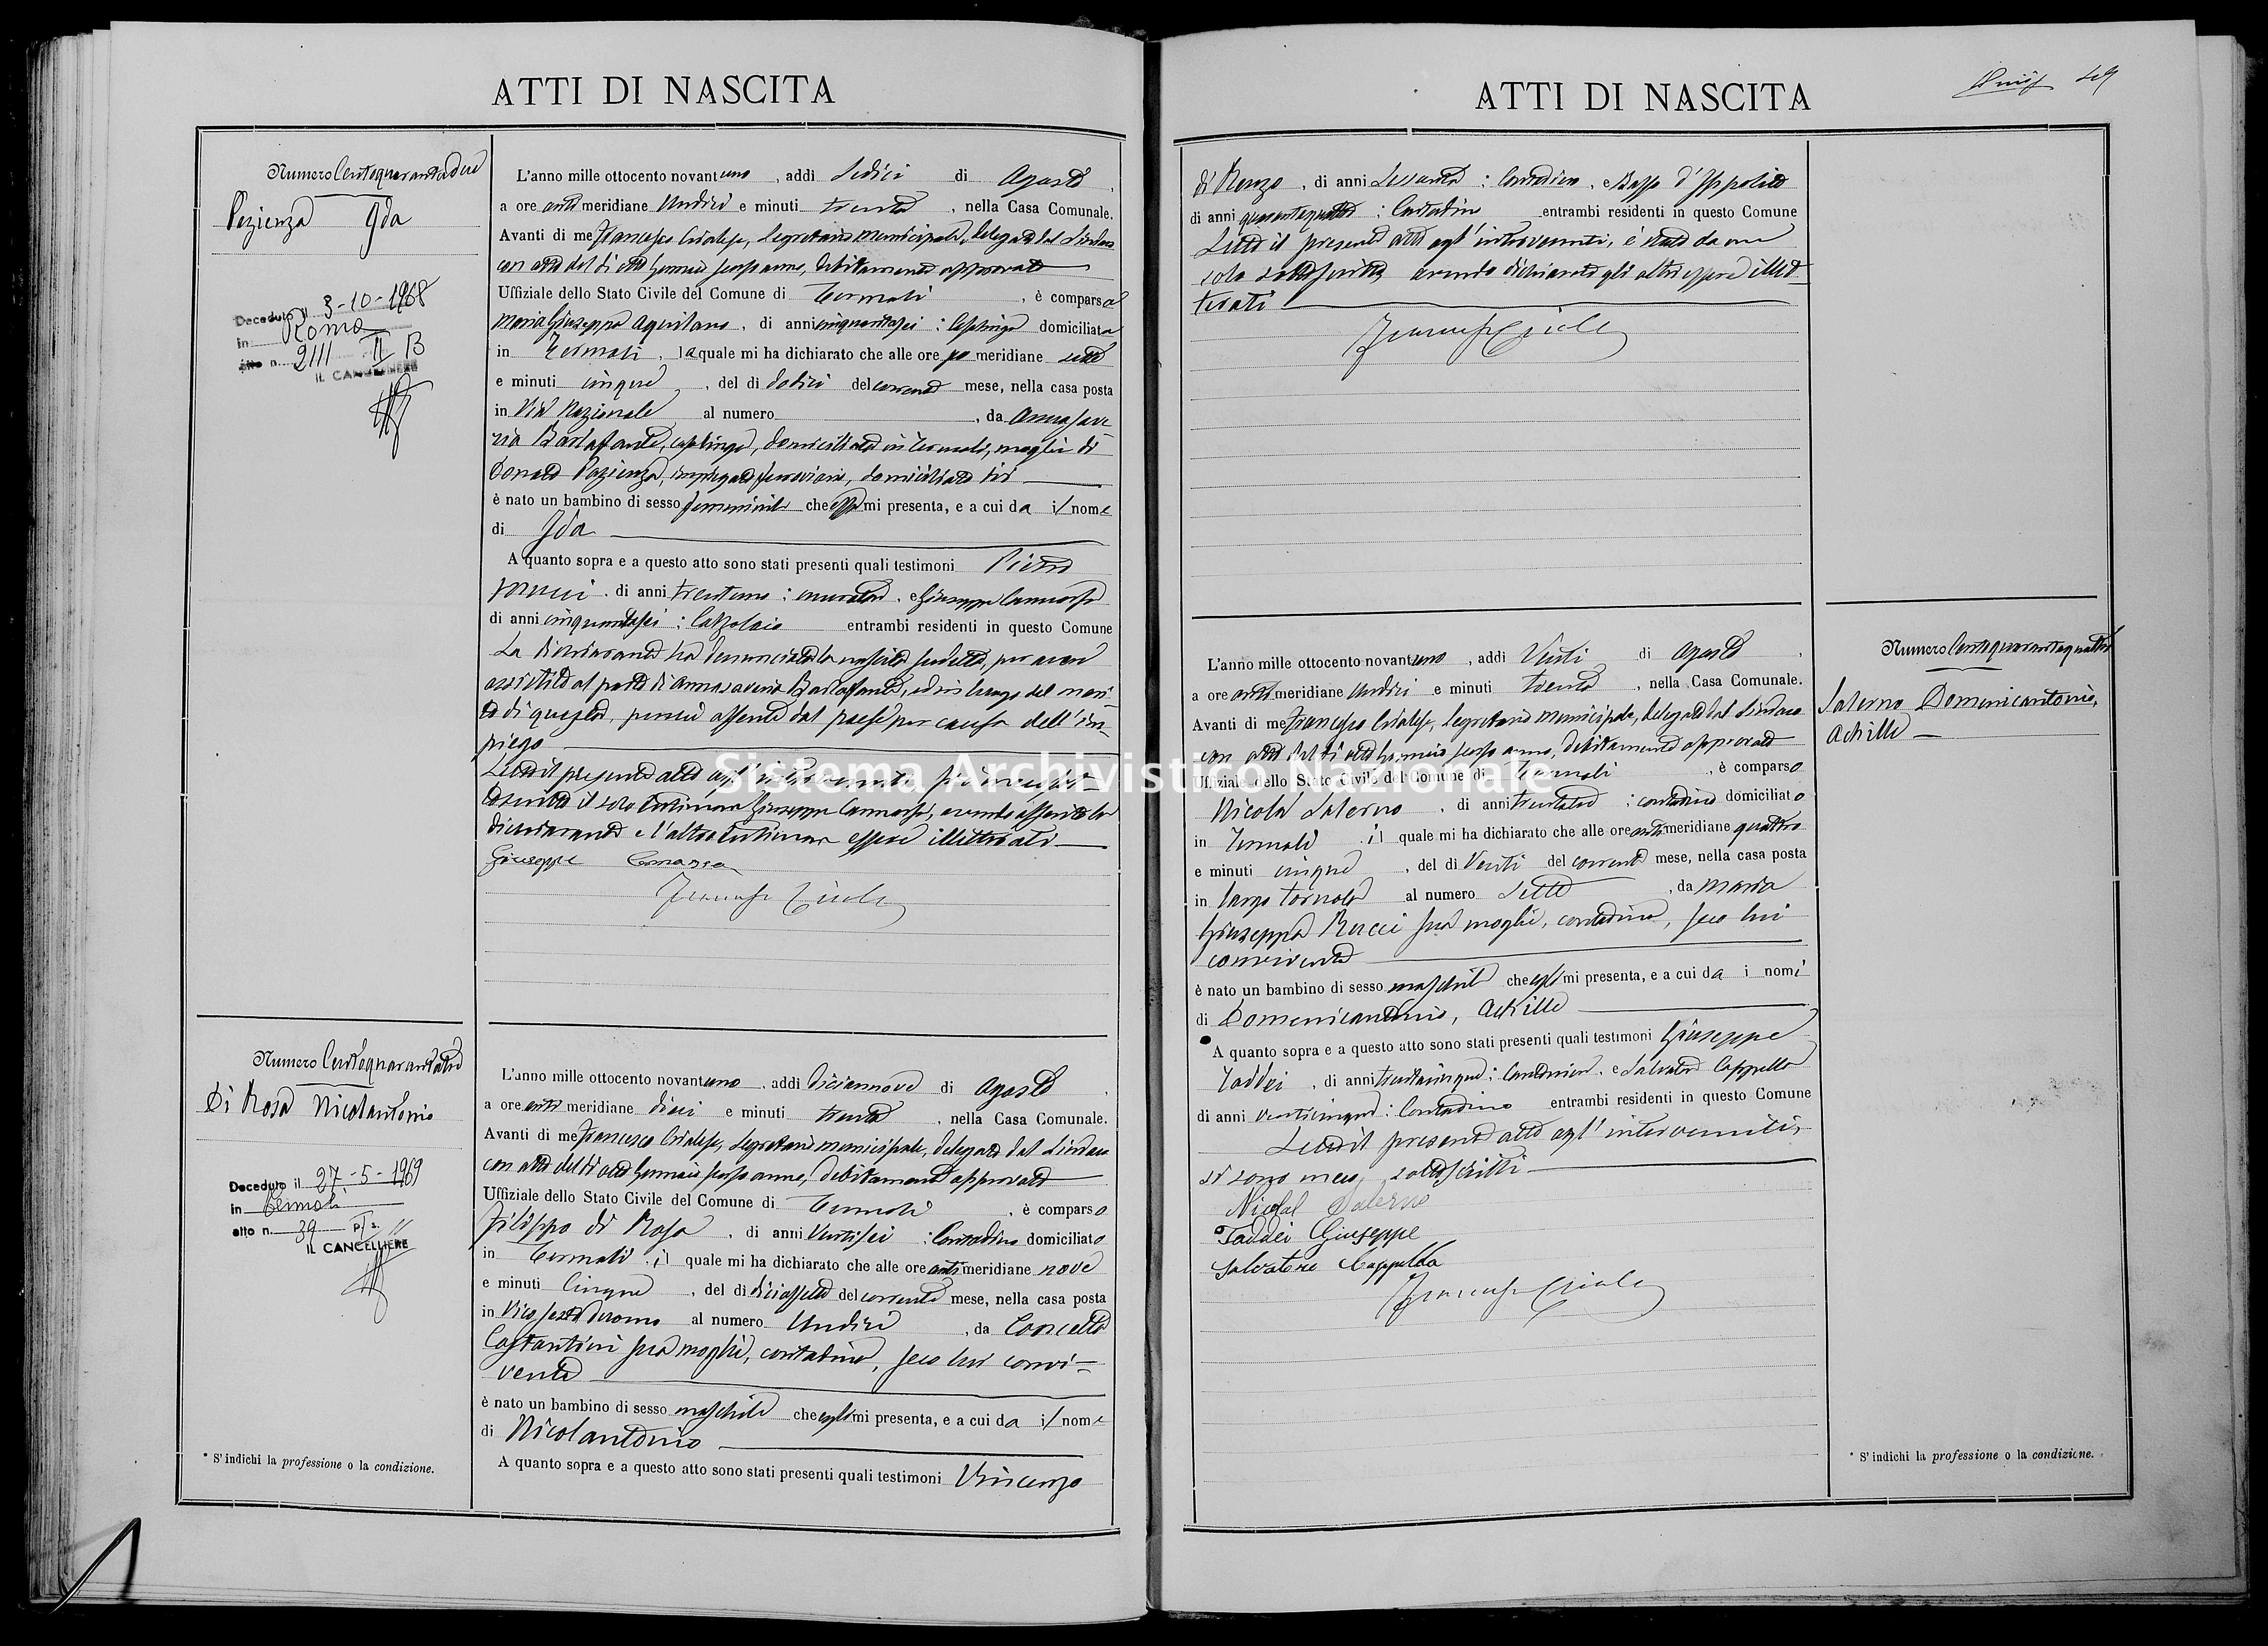 ATTI DI NASCITA
Numero Centoquarantadue
Pazienza Ida
Deceduto il 3-10-1968
in Roma
atto n. 2111 II B
IL CANCELLIERE
L'anno mille ottocento novantuno, addì Sedici di Agosto,
a ore antimeridiane Undici e minuti trenta, nella Casa Comunale.
Avanti di me Francesco Crialese, Segretario Municipale, delegato dal Sindaco
con atto del dì otto Gennaio scorso anno, debitamente approvato
Uffiziale dello Stato Civile del Comune di Termoli, è comparsa
Maria Giuseppa Aquilano, di anni cinquantasei; Casalinga domiciliata
in Termoli, la quale mi ha dichiarato che alle ore pomeridiane sette
e minuti cinque, del dì dodici del corrente mese, nella casa posta
in Via Nazionale al numero, da Annasave
ria Barlafante, casalinga, domiciliata in Termoli, moglie di
Donato Pazienza, impiegato ferroviario, domiciliato ivi
è nato un bambino di sesso femminile che essa mi presenta, e a cui da il nome
di Ida
A quanto sopra e a questo atto sono stati presenti quali testimoni Pietro
di anni trentuno; muratore, e Giuseppe Cannarsa
di anni cinquantasei; Calzolaio entrambi residenti in questo Comune
La dichiarante ha denunciato la nascita suddetta, per avere
assistito al parto di Annasaveria Barlafante, ed in luogo del mari-
to di questa, perché assente dal paese per causa dell'im-
piego
Letto il presente atto agl'intervenuti si è meco sot-
toscritto il solo testimone Giuseppe Cannarsa, avendo asserito la
dichiarante e l'altro testimone essere illetterati
Giuseppe Cannarsa
Numero Centoquarantatre
Di Rosa Nicolantonio
Deceduto il 27-5-1969
in Termoli
atto n. 39 p/s. II
IL CANCELLIERE
L'anno mille ottocento novantuno, addì diciannove di Agosto,
a ore antimeridiane dieci e minuti trenta, nella Casa Comunale.
Avanti di me Francesco Crialese, Segretario municipale, delegato dal Sindaco
con atto del dì otto Gennaio scorso anno, debitamente approvato
Uffiziale dello Stato Civile del Comune di Termoli, è comparso
Filippo di Rosa, di anni Ventisei; Contadino domiciliato
in Termoli, il quale mi ha dichiarato che alle ore antimeridiane nove
e minuti Cinque, del dì diciassette del corrente mese, nella casa posta
in Vico sesto Duomo al numero Undici, da Concetta
Costantini sua moglie, contadina, seco lui convi-
vente
è nato un bambino di sesso maschile che egli mi presenta, e a cui da il nome
di Nicolantonio
A quanto sopra e a questo atto sono stati presenti quali testimoni Vincenzo
* S'indichi la professione o la condizione.
ATTI DI NASCITA
49
di Renzo, di anni Sessanta; Contadino, e Basso d'Ippolito
di anni quarantaquattro; Contadino entrambi residenti in questo Comune
Letto il presente atto agl'intervenuti, è stato da me
solo sottoscritto avendo dichiarato gli altri essere illet-
terati
Numero Centoquarantaquattro
Salerno Domenicantonio,
Achille
L'anno mille ottocento novantuno, addì Venti di Agosto,
a ore antimeridiane Undici e minuti trenta, nella Casa Comunale.
Avanti di me Francesco Crialese, Segretario Municipale, delegato dal Sindaco
con atto del dì otto Gennaio scorso anno, debitamente approvato
Uffiziale dello Stato Civile del Comune di Termoli, è comparso
Nicola Salerno, di anni trentatre; contadino domiciliato
in Termoli, il quale mi ha dichiarato che alle ore antimeridiane quattro
e minuti cinque, del dì Venti del corrente mese, nella casa posta
in largo Tornola al numero Sette, da Maria
Giuseppa Ricci sua moglie, contadina, seco lui
convivente
è nato un bambino di sesso maschile che egli mi presenta, e a cui da i nomi
di Domenicantonio, Achille
A quanto sopra e a questo atto sono stati presenti quali testimoni Giuseppe
Taddei, di anni trentacinque; Contadino, e Salvatore Cappella
di anni venticinque; Contadino entrambi residenti in questo Comune
Letto il presente atto agl'intervenuti,
si sono meco sottoscritti
Nicola Salerno
Taddei Giuseppe
Salvatore Cappella
* S'indichi la professione o la condizione.
Sistema Archivistico Nazionale